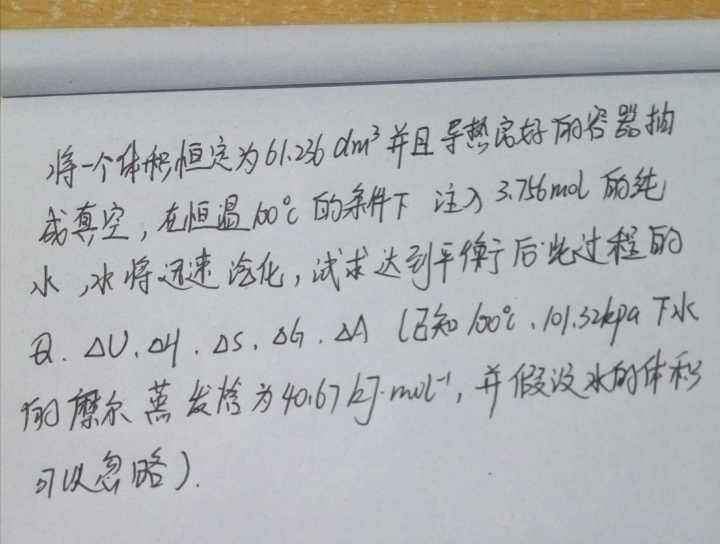 将一个体积恒定为61.236 dm³并且导热良好的容器抽
成真空，在恒温100℃的条件下 注入 3.756mol 的纯
水，水将迅速汽化，试求达到平衡后此过程的
Q．ΔU．ΔH．ΔS．ΔG．ΔA（已知100℃．101.32kpa下水
的摩尔蒸发焓为40.67kJ·mol⁻¹，并假设水的体积
可以忽略）．